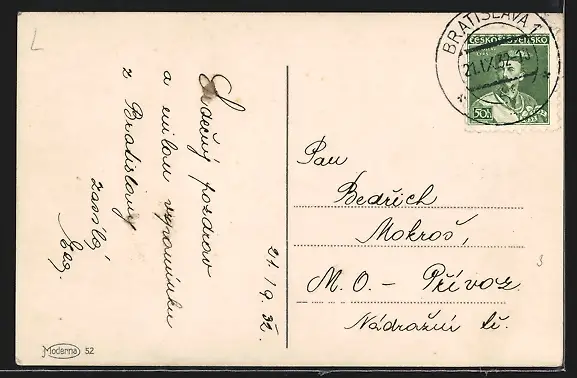 L
BRATISLAVA 1
21.IX.32
ČESKOSLOVENSKO
50h
Srdečný pozdrav
a milou vzpomínku
z Bratislavy
zasílá
21./9. 32.
Pan
Bedřich
Mokroš,
M. O. – Přívoz
Nádražní tř.
Moderna 52